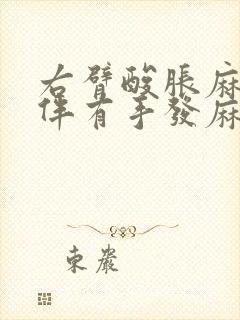 右臂酸脹麻
伴有手發麻
東巖